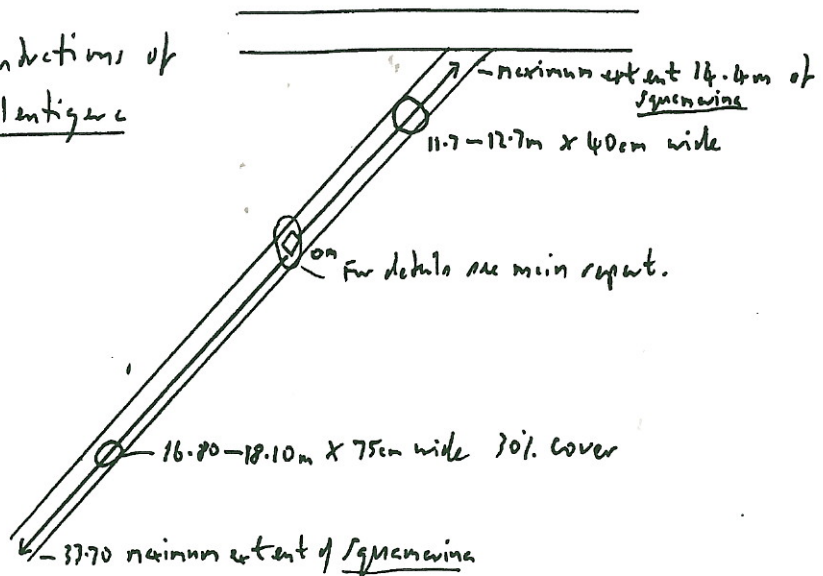 of
lentigera
- maximum extent 14.4m of
Squamarina
11.7-12.7m x 40cm wide
0m
For details see main report.
16.80-18.10m x 75cm wide 30% cover
- 33.70 maximum extent of Squamarina